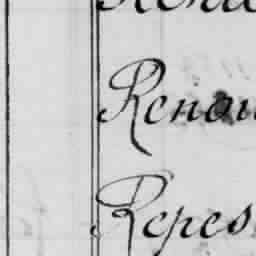 Renou
Repes